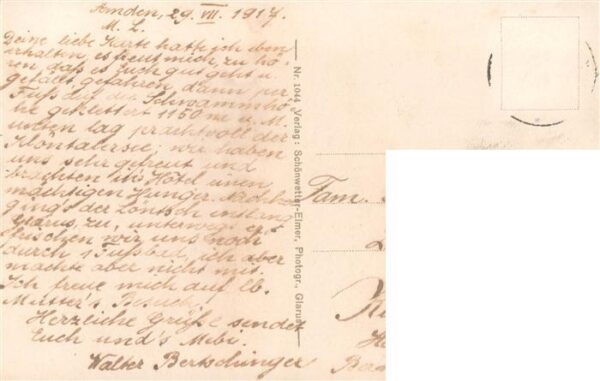 Amden, 29. VII. 1917.
M. L.
Deine liebe Karte hatte ich eben
erhalten, es freut mich, zu hö-
ren, dass es Euch gut geht u.
gefahren, dann per
Fuss auf die Schwammhö-
he geklettert 1150 m ü. M.
unten lag prachtvoll der
Klöntalersee; wir haben
uns sehr gefreut und
brachten ins Hotel einen
mächtigen Hunger. Nachher
ging's der Löntsch entlang
Glarus zu, unterwegs er-
frischten wir uns noch
durch 1 Fussbad, ich aber
machte aber nicht mit.
Ich freue mich auf lb.
Mutter's Besuch.
Herzliche Grüsse sendet
Euch und's Mebi.
Walter Bertschinger
Nr. 1044 Verlag: Schönwetter-Elmer, Photogr., Glarus
Fam.